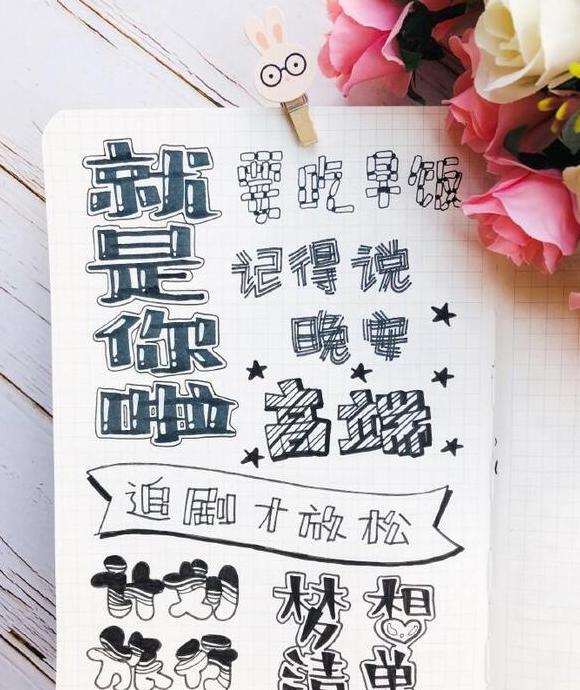 就是你啦
要吃早饭
记得说
晚安
高端
追剧才放松
梦想
清单